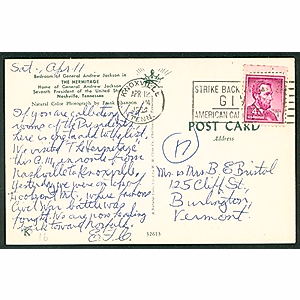 Sat. Apr 11
Bedroom of General Andrew Jackson in
THE HERMITAGE
Home of General Andrew Jackson
Seventh President of the United States
Nashville, Tennessee
Natural Color Photograph by
KNOXVILLE
APR 12
TENN.
STRIKE BACK
GIVE
AMERICAN CAN
4¢
POST CARD
Address
If you are collecting
rooms of the Presidents
here is one to add to the list.
We visited "The Hermitage"
this A.M. en route from
Nashville to Knoxville.
Yesterday we were on top of
Lookout Mt. where famous
Civil War battle was
fought. We are now heading
back toward Norfolk.
E.F.C.
17
Mr. & Mrs. B. E. Bristol
125 Cliff St.,
Burlington,
Vermont.
K
16
52613